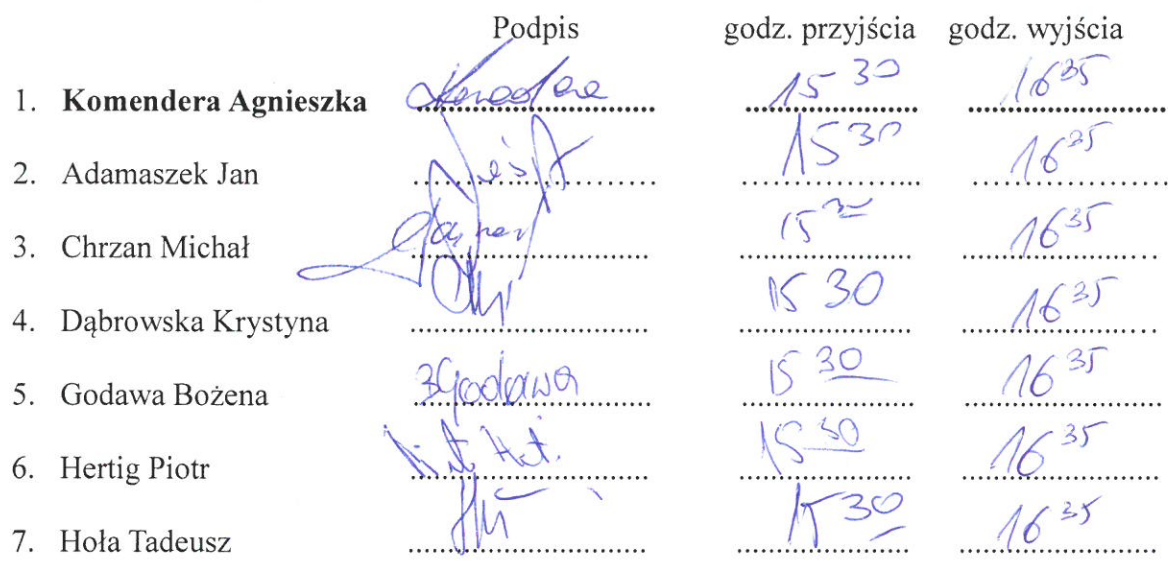 Podpis godz. przyjścia godz. wyjścia
1. Komendera Agnieszka 15 30 16 35
2. Adamaszek Jan 15 30 16 35
3. Chrzan Michał 15 30 16 35
4. Dąbrowska Krystyna 15 30 16 35
5. Godawa Bożena BGodawa 15 30 16 35
6. Hertig Piotr 15 30 16 35
7. Hoła Tadeusz 15 30 16 35